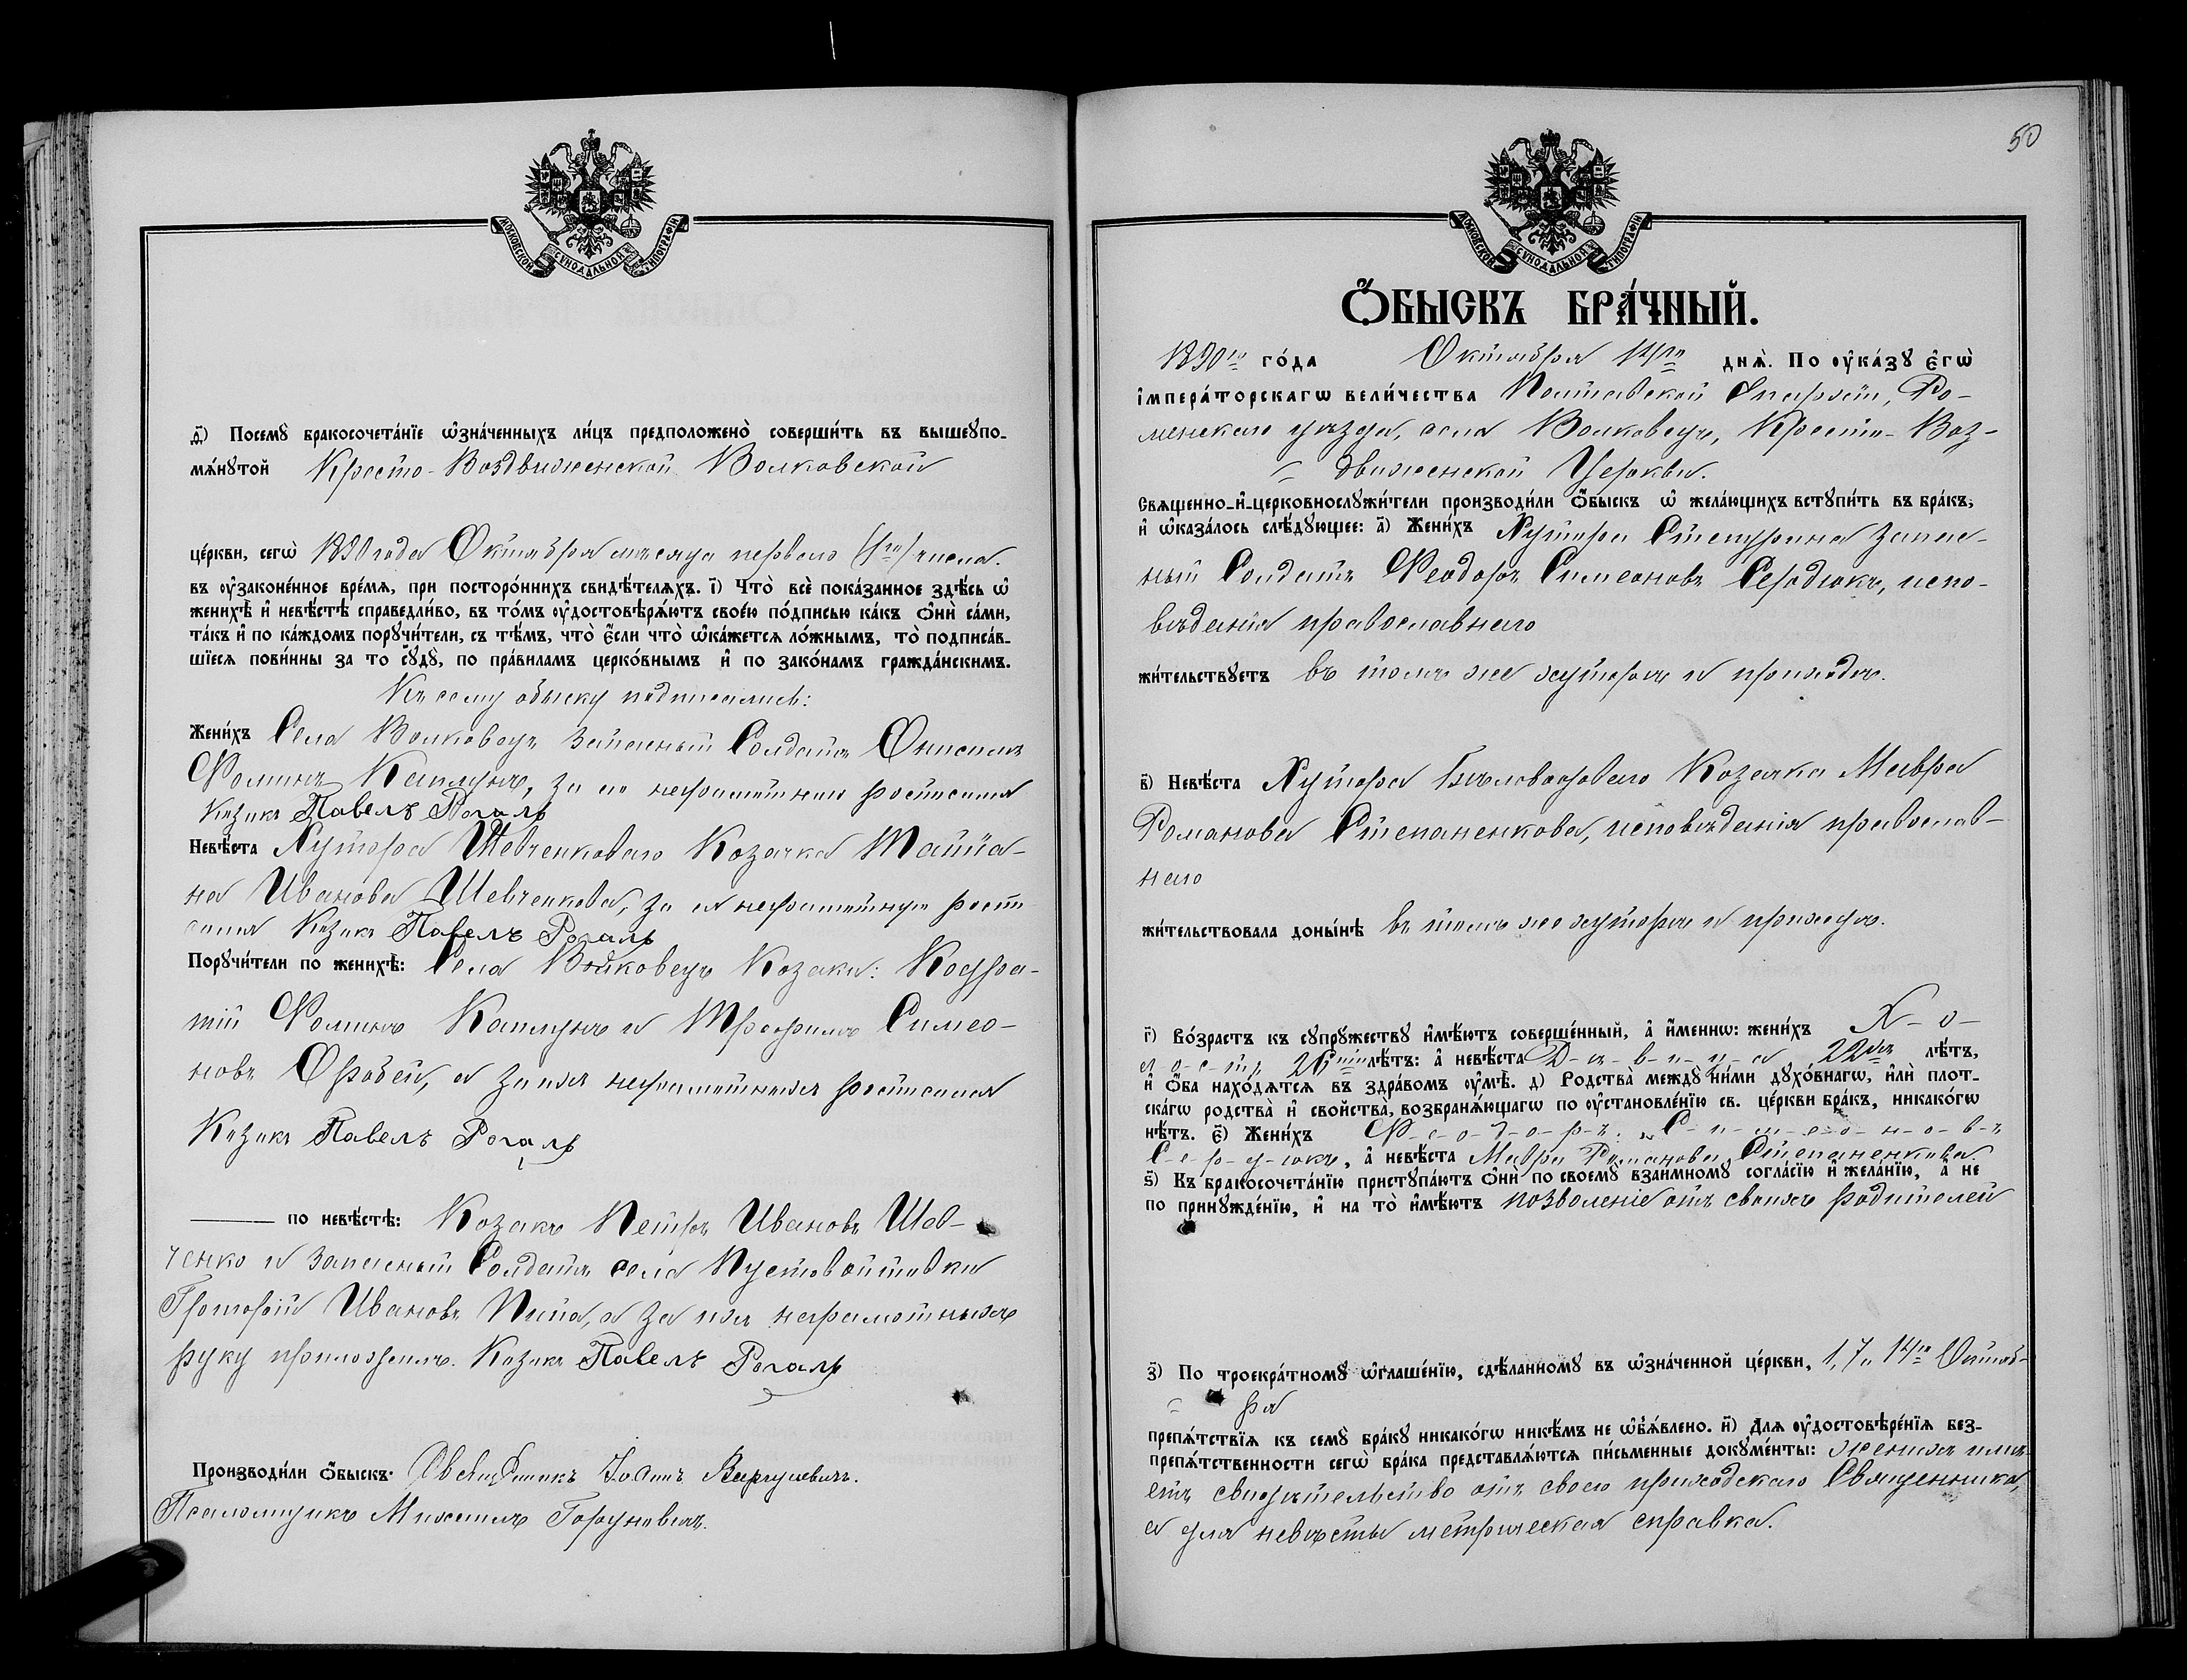 МОСКОВСКОЙ СѴНОДАЛЬНОЙ ТИПОГРАФІИ
д҃) Посемꙋ̀ бракосочета́нїе ѡ҆зна́ченныхъ ли́цъ предположено̀ соверши́ть въ вышеꙋпо-
мѧ́нꙋтой Кресто-Воздвиженской Волковской
це́ркви, сегѡ̀ 1890 года Октября мѣсяца перваго (1го) числа.
въ ᲂу҆законе́нное вре́мѧ, при посторо́ннихъ свидѣ́телѧхъ. і҃) Что̀ всѐ пока́занное здѣ́сь ѡ҆
женихѣ̀ и҆ невѣ́стѣ справедли́во, въ то́мъ ᲂу҆достовѣрѧ́ютъ свое́ю по́дписью ка́къ ѻ҆нѝ са́ми,
та́къ и҆ по ка́ждомъ порꙋчи́тели, съ тѣ́мъ, что̀ є҆́сли что̀ ѡ҆ка́жетсѧ ло́жнымъ, то̀ подписа́в-
шїесѧ пови́нны за то сꙋдꙋ̀, по пра́виламъ церко́внымъ и҆ по зако́намъ гражда́нскимъ.
Къ сему обыску подписались:
Жени́хъ Села Волковецъ запасный Солдатъ Онисимъ
Ѳоминъ Каплунъ, за не неграмотнаго росписался
Козакъ Павелъ Рогаль
Невѣ́ста Хутора Шевченковаго Козачка Татіа-
на Иванова Шевченкова, за ея неграмотную роспи
сался Козакъ Павелъ Рогаль
Порꙋчи́тели по женихѣ̀: Села Волковецъ Козаки: Кодра-
тій Ѳоминъ Каплунъ и Трофимъ Симео-
новъ Оробей, а за нихъ неграмотныхъ росписался
Козакъ Павелъ Рогаль
по невѣ́стѣ: Козакъ Петръ Ивановъ Шев-
ченко и запасный Солдатъ села Пустовойтовки
Григорій Ивановъ Пипа, а за нихъ неграмотныхъ
руку приложилъ Козакъ Павелъ Рогаль
Производи́ли ѻ҆́быскъ: Священникъ Іоаннъ
Псаломщикъ Михаилъ
50
МОСКОВСКОЙ СѴНОДАЛЬНОЙ ТИПОГРАФІИ
Ѻ҆́БЫСКЪ БРА́ЧНЫЙ.
1890го го́да Октября 14го днѧ̀. По ᲂу҆ка́зꙋ є҆гѡ̀
і҆мпера́торскагѡ вели́чества Полтавской Епархіи, Ро-
менскаго уѣзда, села Волковецъ, Кресто-Воз-
движенской Церкви.
Свѧщенно-и҆-церковнослꙋжи́тели производи́ли ѻ҆́быскъ ѡ҆ жела́ющихъ встꙋпи́ть въ бра́къ,
и҆ ѡ҆каза́лось слѣ́дꙋющее: а҃) Жени́хъ Хутора запас-
ный Солдатъ Ѳеодоръ Симеоновъ Сердюкъ, испо-
вѣданія православнаго
жи́тельствꙋетъ въ томъ же хуторѣ и приходѣ.
в҃) Невѣ́ста Хутора Козачка Мавра
Романова Степаненкова, исповѣданія православ-
наго
жи́тельствовала доны́нѣ въ томъ же хуторѣ и приходѣ.
г҃) Во́зрастъ къ сꙋпрꙋ́жествꙋ и҆мѣ́ютъ соверше́нный, а҆ и҆́меннѡ: жени́хъ Х-о-
л-о-с-т-ъ 26ти лѣ́тъ: а҆ невѣ́ста Д-ѣ-в-и-ц-а 22хъ лѣ́тъ,
и҆ ѻ҆́ба нахо́дѧтсѧ въ здра́вомъ ᲂу҆мѣ̀. д҃) Родства̀ междꙋ̀ ни́ми дꙋхо́внагѡ, и҆лѝ плот-
ска́гѡ родства̀ и҆ свойства̀, возбранѧ́ющагѡ по ᲂу҆становле́нїю св. це́ркви бра́къ, никако́гѡ
нѣ́тъ. є҃) Жени́хъ Ѳ-е-о-д-о-р-ъ С-и-м-е-о-н-о-в-ъ
С-е-р-д-ю-къ, а҆ невѣ́ста Мавра Романова Степаненкова.
ѕ҃) Къ бракосочета́нїю пристꙋпа́ютъ ѻ҆нѝ по своемꙋ̀ взаи́мномꙋ согла́сїю и҆ жела́нїю, а҆ не
по принꙋжде́нїю, и҆ на то̀ и҆мѣ́ютъ позволеніе отъ своихъ родителей
з҃) По троекра́тномꙋ ѡ҆глаше́нїю, сдѣ́ланномꙋ въ ѡ҆зна́ченной це́ркви, 1, 7 и 14го Октяб-
ря
препѧ́тствїѧ къ семꙋ̀ бра́кꙋ никако́гѡ никѣ́мъ не ѡ҆б̾ѧ́влено. и҃) Длѧ ᲂу҆достовѣре́нїѧ без-
препѧ́тственности сегѡ̀ бра́ка представлѧ́ютсѧ пи́сьменные докꙋме́нты: женихъ имѣ-
етъ свидѣтельство отъ своего приходскаго Священника,
а для невѣсты метрическая справка.